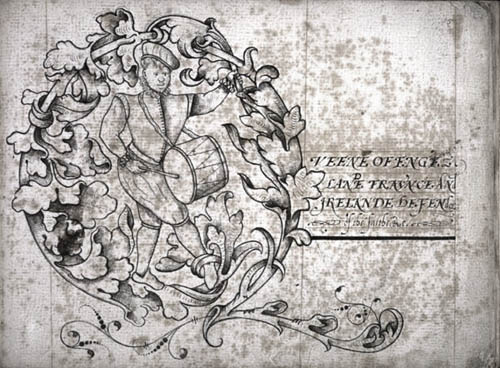 QVEENE OF ENGE
LANDE FRAVNCE AN
IRELANDE DEFEN
of the faithe &c.